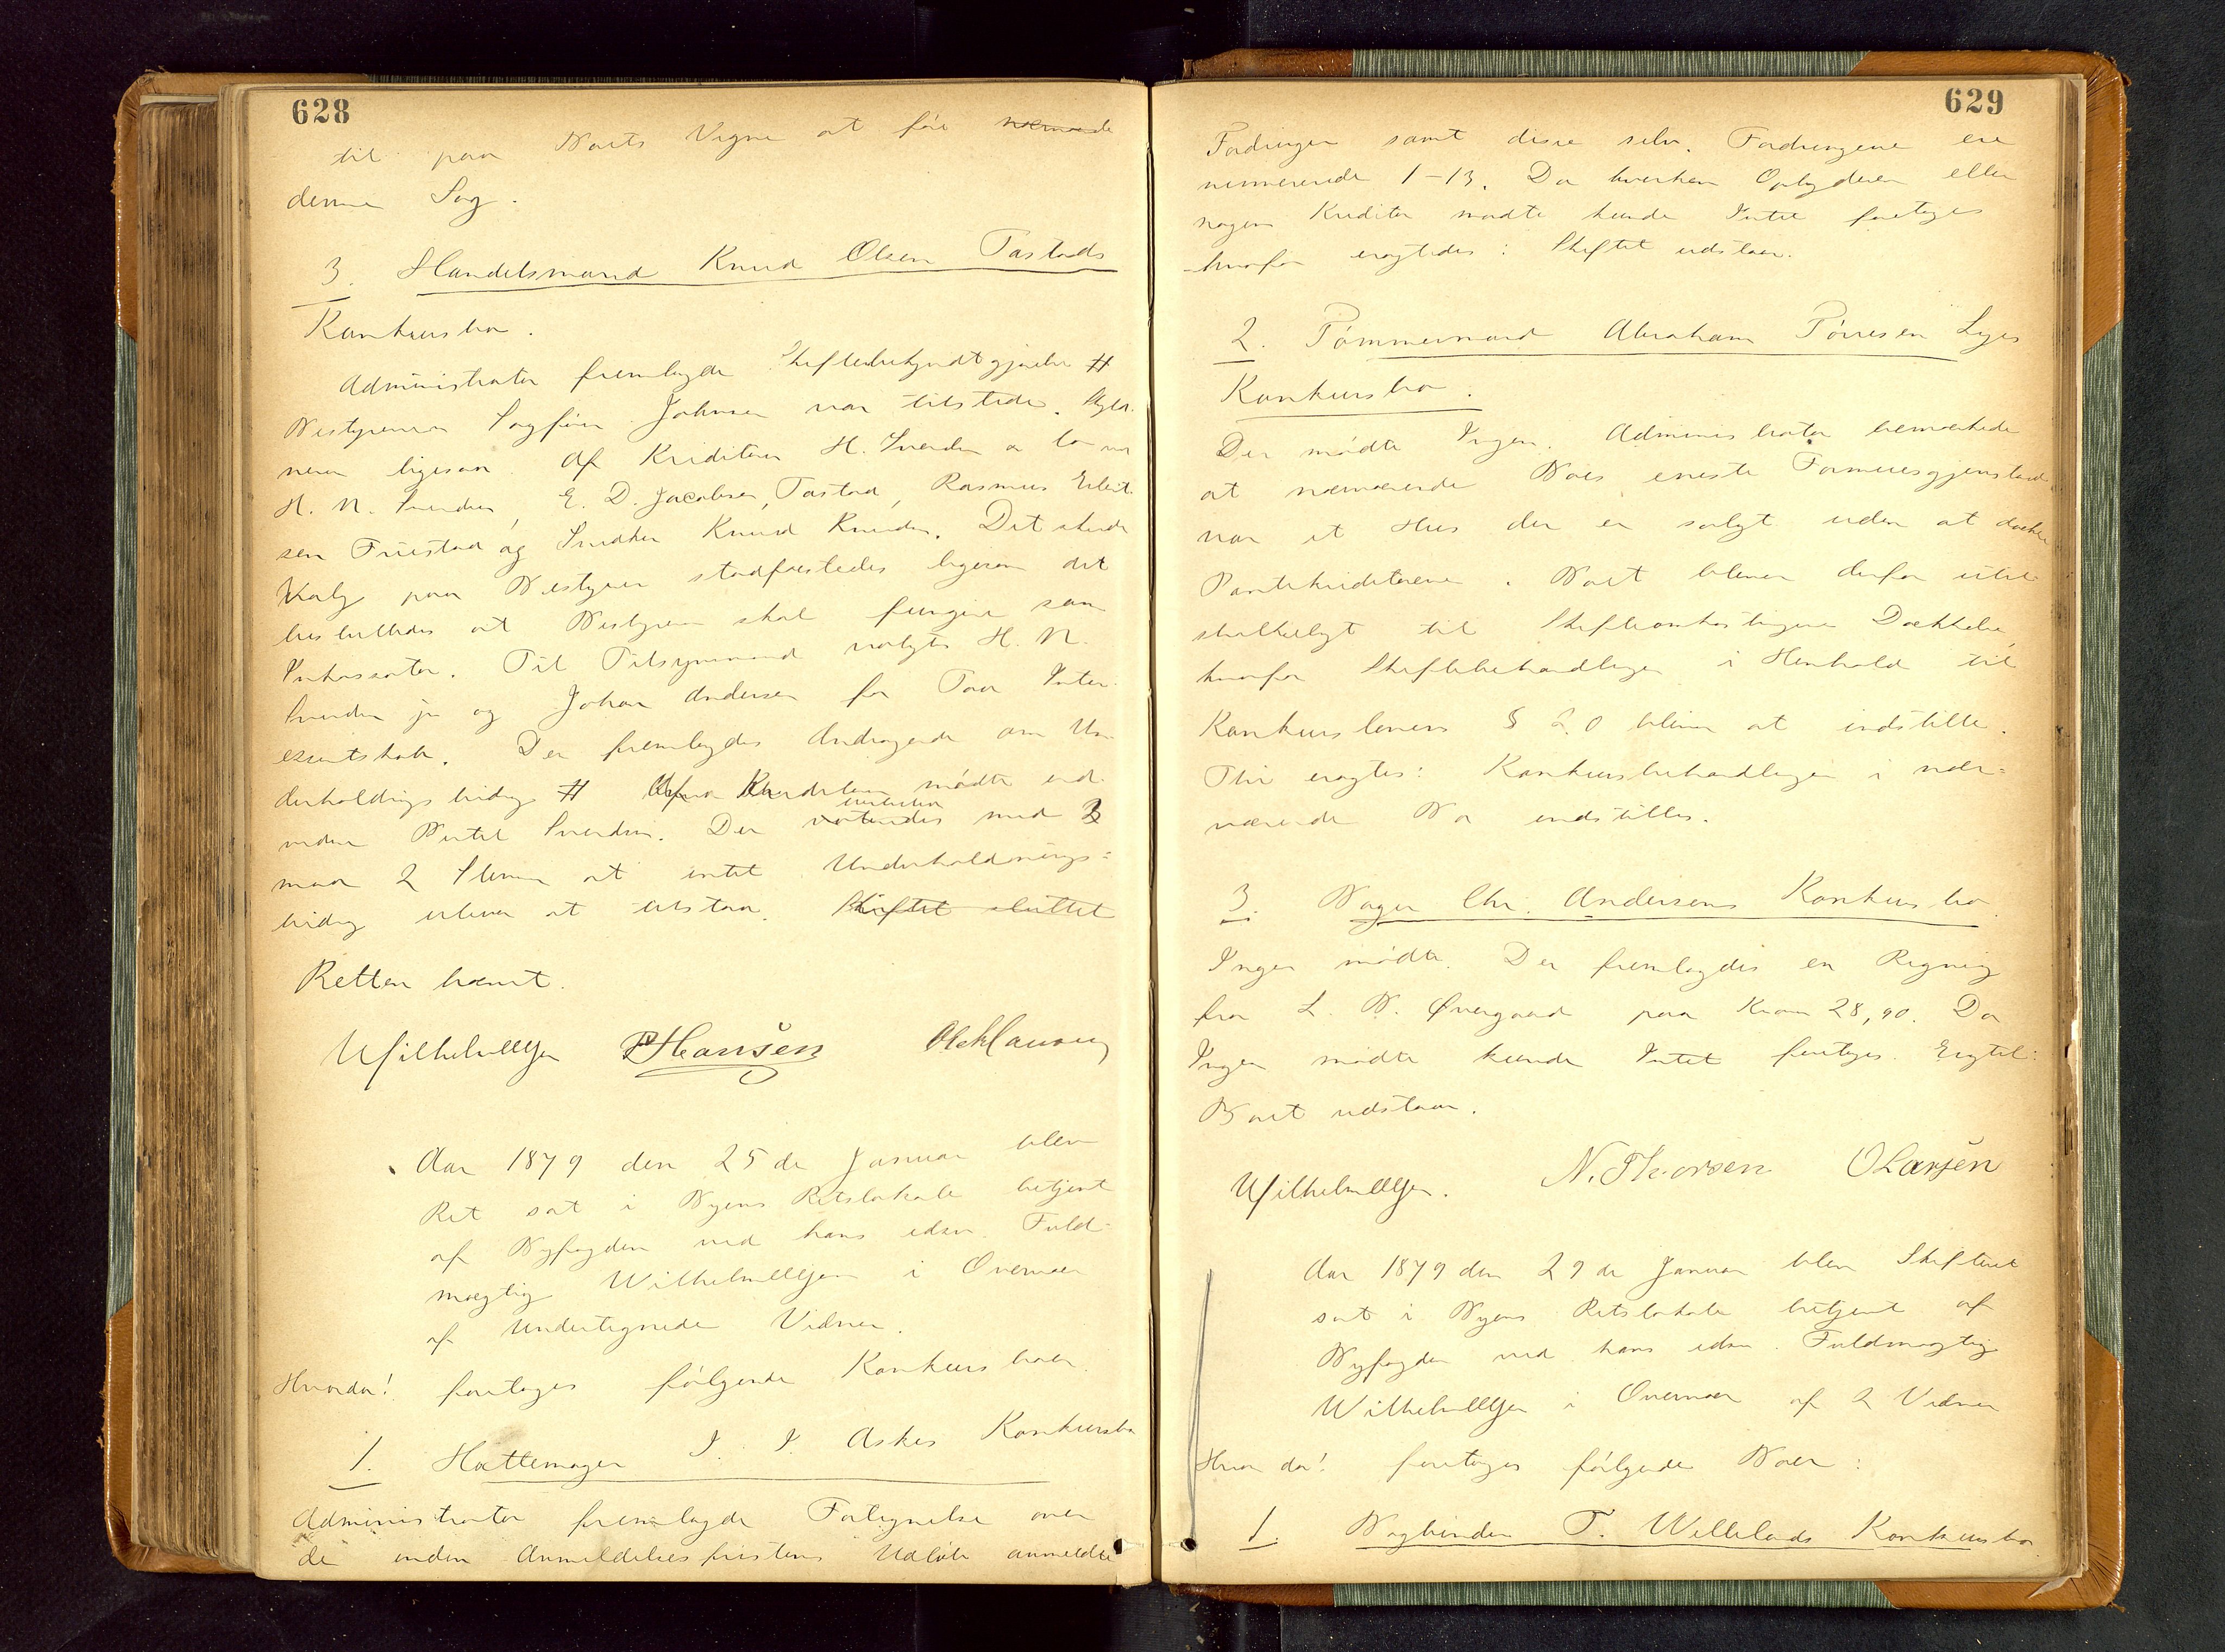 628
til paa Boets Vegne at føre nærværende
denne Sag.
3. Handelsmand Knud Olsen Tastads
Konkursbo.
Administrator fremlagde Skiftebekjendtgjørelse #
Bestyreren Sagfører Johnsen var tilstede. Skyld-
neren ligesaa. Af Kreditorer H. Svendsen
H. N. Svendsen, E. D. Jacobsen, Tastad, Rasmus
sen Friestad og Snedker Knud Knudsen. Det skede
Valg paa Bestyrer stadfæstedes ligesom det
besluttedes at Bestyreren skal fungere som
Inkassator. Til Tilsynsmænd valgtes H. N.
Svendsen jr og Johan Andersen for Inter-
essentskab. Der fremlagdes Andragende om Un-
derholdningsbidrag # Af Kreditorer mødte end-
videre Bertel Svendsen. Der votertes med 3
mod 2 Stemmer at intet Underholdnings-
bidrag bliver at tilstaa. Skiftet sluttet
Retten hævet.
WilhelmEllgen PHansen OleHansen
Aar 1879 den 25de Januar blev
Ret sat i Byens Retslokale betjent
af Byfogden ved hans edsv. Fuld-
mægtig WilhelmEllgen i Overvær
af undertegnede Vidner.
Hvorda! foretoges følgende Konkursboer.
1. Hattemager J. J. Askes Konkursbo
Administrator fremlagde Fortegnelse over
de inden Anmeldelsesfristens Udløb anmeldte
629
Fordringer samt disse selv. Fordringerne ere
nummererede 1-13. Da hverken Opbyderen eller
nogen Kreditor mødte kunde Intet foretages
hvorfor eragtedes: Skiftet udstaar.
2. Tømmermand Abraham Tørresen Lyes
Konkursbo.
Der mødte Ingen. Administrator bemærkede
at nærværende Boes eneste Formuesgjenstand
var et Hus der er solgt uden at dække
Pantekreditorerne. Boet bliver derfor util-
strækkeligt til Skifteomkostningernes Dækkelse,
hvorfor Skiftebehandlingen i Henhold til
Konkurslovens § 20 bliver at indstille.
Thi eragtes: Konkursbehandlingen i nær-
værende Bo indstilles.
3. Bager Chr. Andersens Konkursbo.
Ingen mødte. Der fremlagdes en Regning
fra L. B. Øvergaard paa Kroner 28,90. Da
Ingen mødte kunde Intet foretages. Eragtet:
Boet udstaar.
WilhelmEllgen. N. Thorsen OLarsen
Aar 1879 den 29de Januar blev Skifteret
sat i Byens Retslokale betjent af
Byfogden ved hans edsv Fuldmægtig
WilhelmEllgen i Overvær af 2 Vidner
Hvor da! foretoges følgende Boer:
1. Bogbinder T. Wellelands Konkursbo